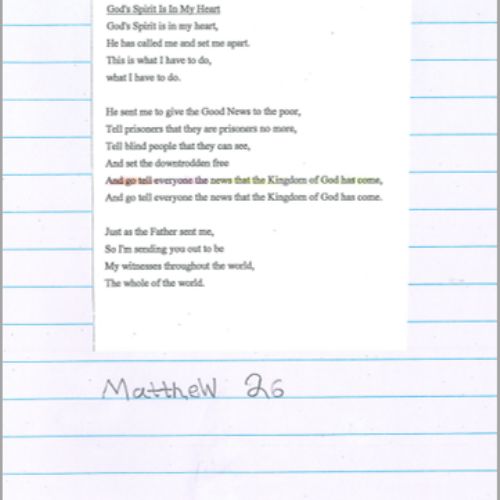 God's Spirit Is In My Heart
God's Spirit is in my heart,
He has called me and set me apart.
This is what I have to do,
what I have to do.
He sent me to give the Good News to the poor,
Tell prisoners that they are prisoners no more,
Tell blind people that they can see,
And set the downtrodden free
And go tell everyone the news that the Kingdom of God has come,
And go tell everyone the news that the Kingdom of God has come.
Just as the Father sent me,
So I'm sending you out to be
My witnesses throughout the world,
The whole of the world.
Matthew 26